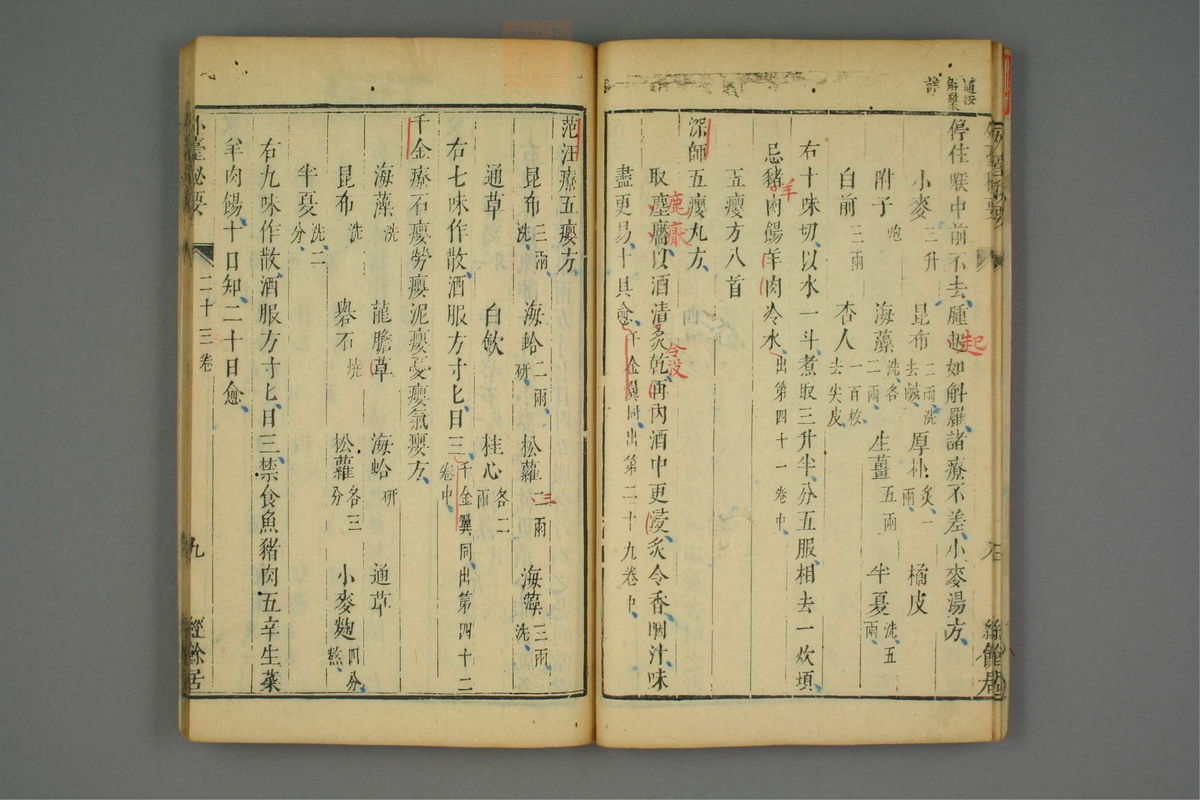 停住喉中前不去腫起如斛羅諸療不差小麥湯方
小麥三升 昆布二兩洗去鹹 厚朴炙一兩 橘皮
附子炮 海藻洗各二兩 生薑五兩 半夏洗五兩
白前三兩 杏人一百枚去尖皮
右十味切以水一斗煮取三升半分五服相去一炊頃
忌豬肉餳羊肉冷水出第四十一卷中
羊
五癭方八首
深師五癭丸方
取麈靨以酒漬炙乾再內酒中更浸炙令香嚥汁味
鹿靨
令沒
盡更易十具愈千金翼同出第二十九卷中
范汪療五癭方
昆布三兩洗 海蛤二兩研 松蘿二兩 海藻三兩洗
三
通草 白歛 桂心各二兩
右七味作散酒服方寸匕日三千金翼同出第四十二卷中
千金療石癭勞癭泥癭憂癭氣癭方
海藻洗 龍膽草 海蛤研 通草
昆布洗 礜石燒 松蘿各三分 小麥麴四分熬
半夏洗二分
右九味作散酒服方寸匕日三禁食魚豬肉五辛生菜
羊肉餳十日知二十日愈
外臺秘要 二十三卷 九 經餘居